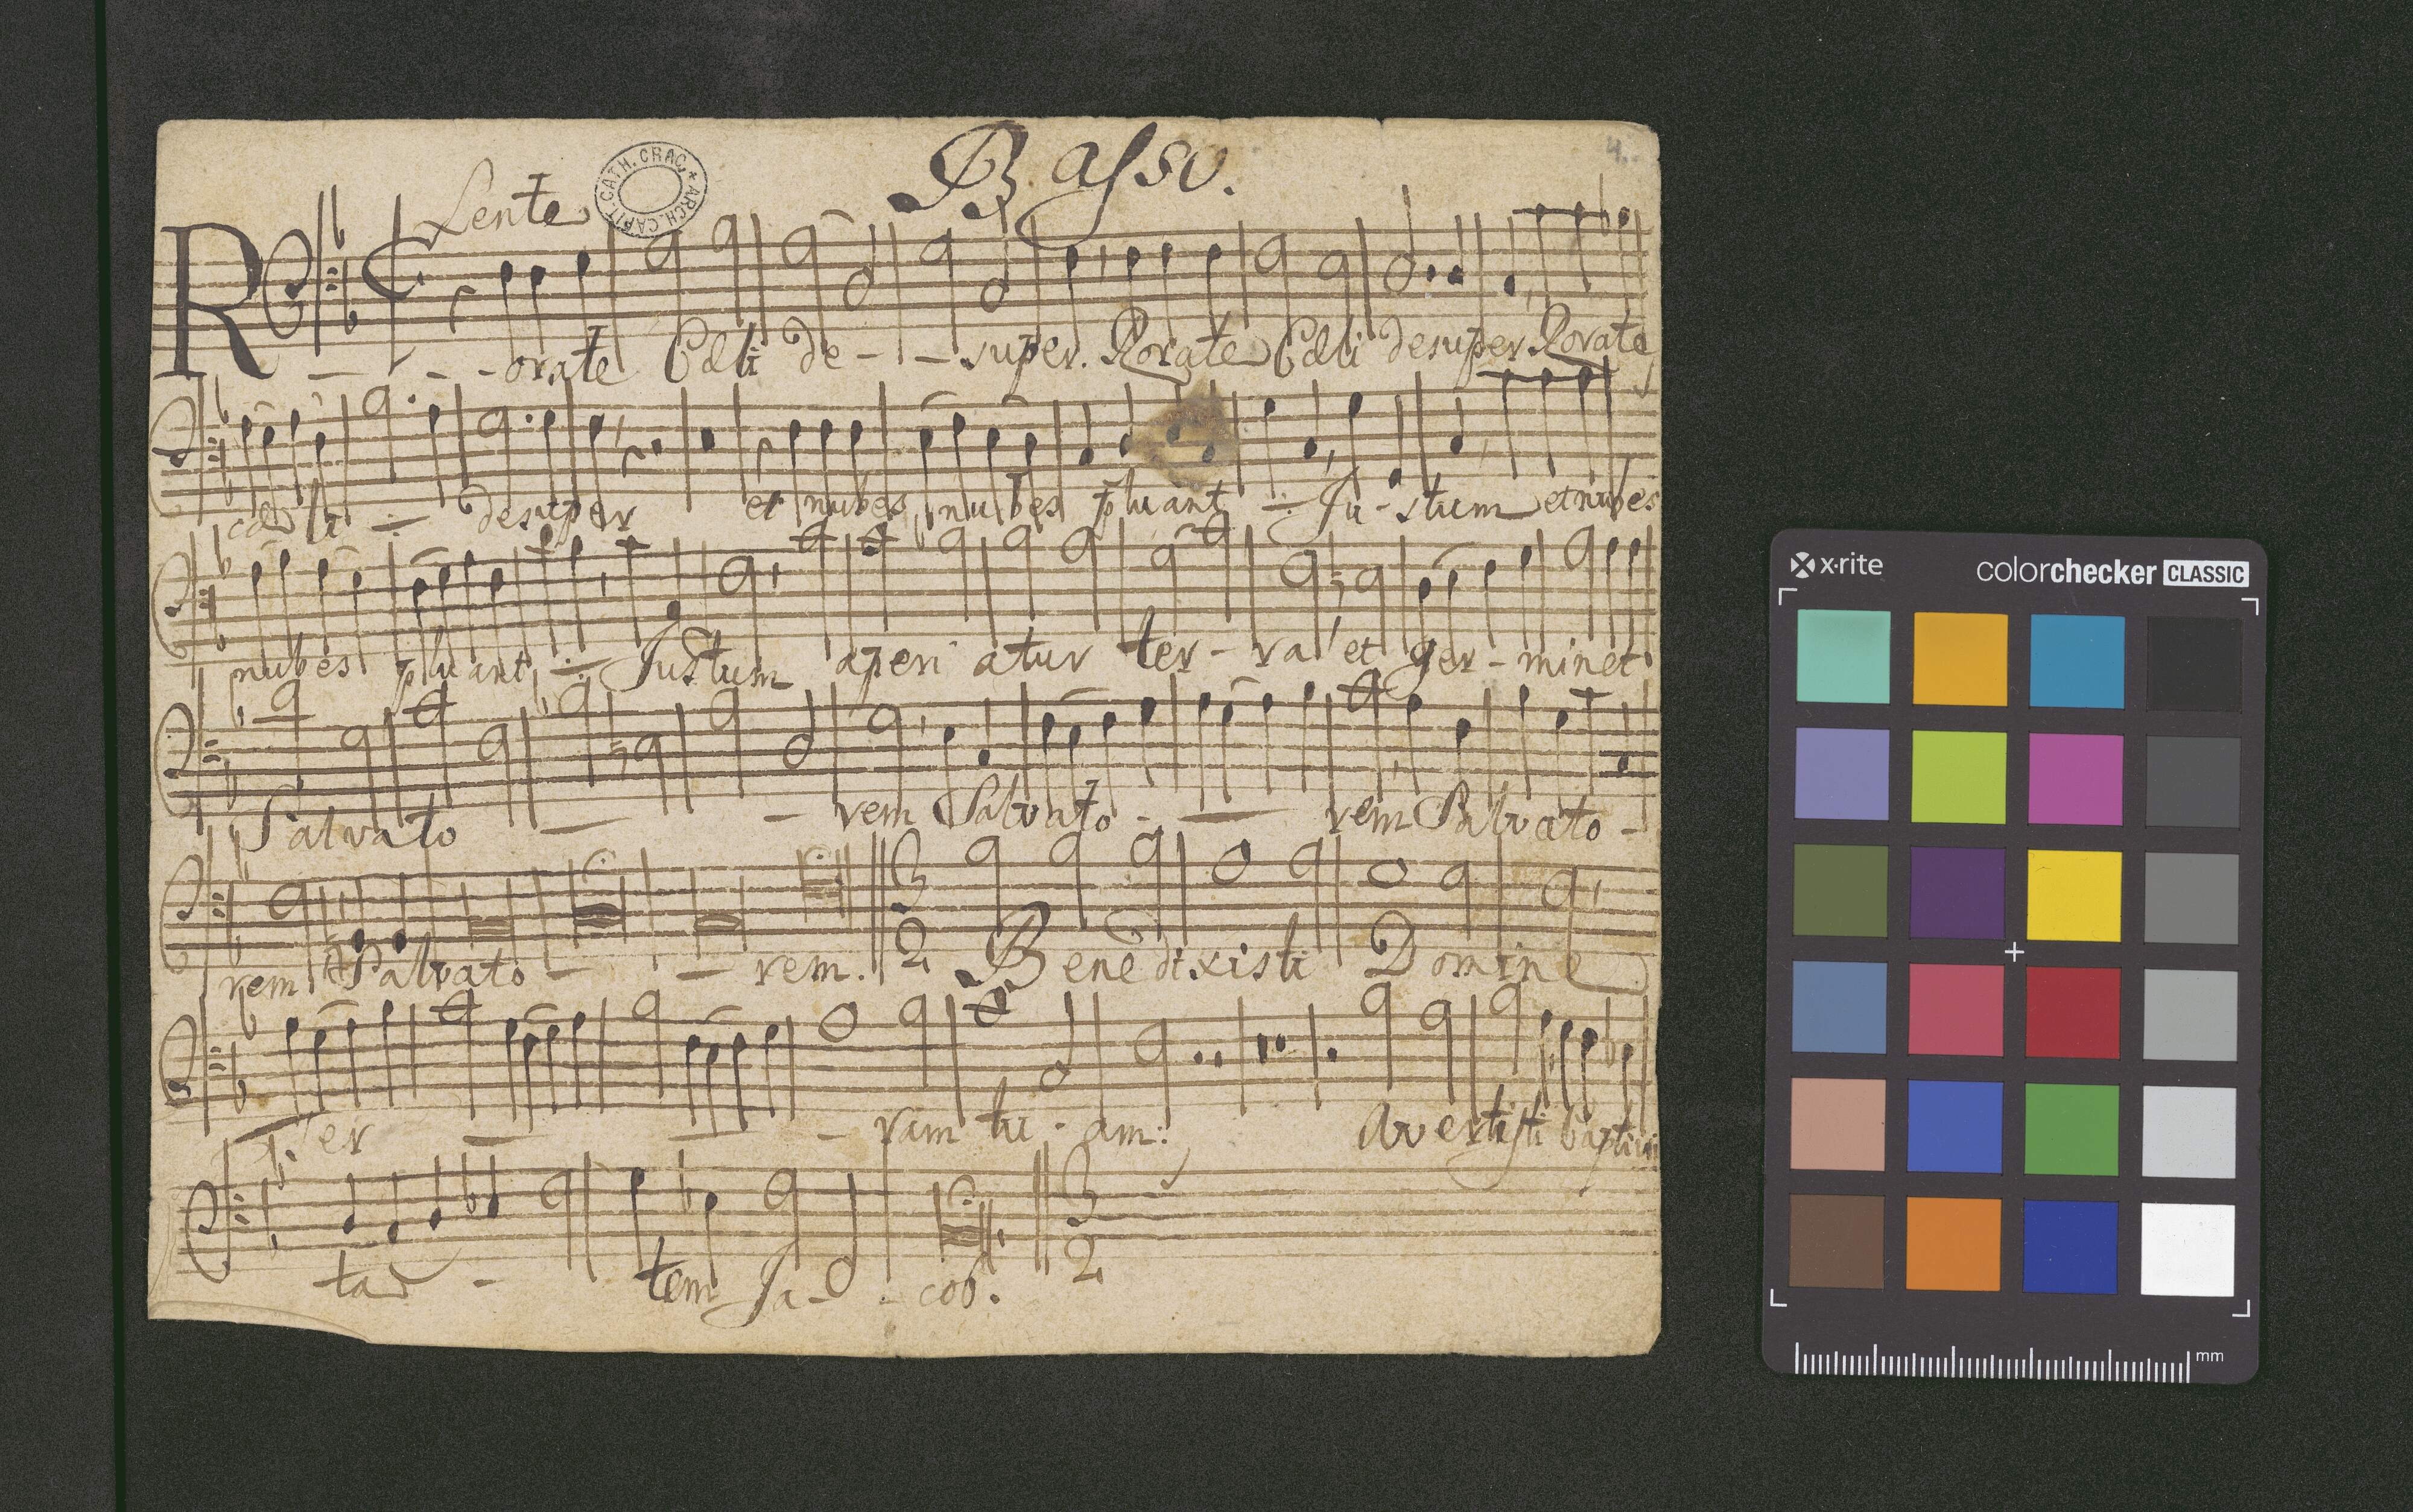 Basso.
4.
Lente
ARCH. CAPIT. CATH. CRAC.
R - - - orate Cæli de - - super. Rorate Cæli desuper. Rorate
cæli desuper et nubes nubes pluant Ju - stum et nubes
nubes pluant Justum aperi atur ter - ra et ger - minet
Salvato - rem Salvato - rem Salvato -
rem Salvato - - rem. 3 2 Benedixisti Domine
Ter - - - ram tu - am: Avertisti captivi
ta - tem Ja - - cob. 3 2
x-rite
colorchecker CLASSIC
mm